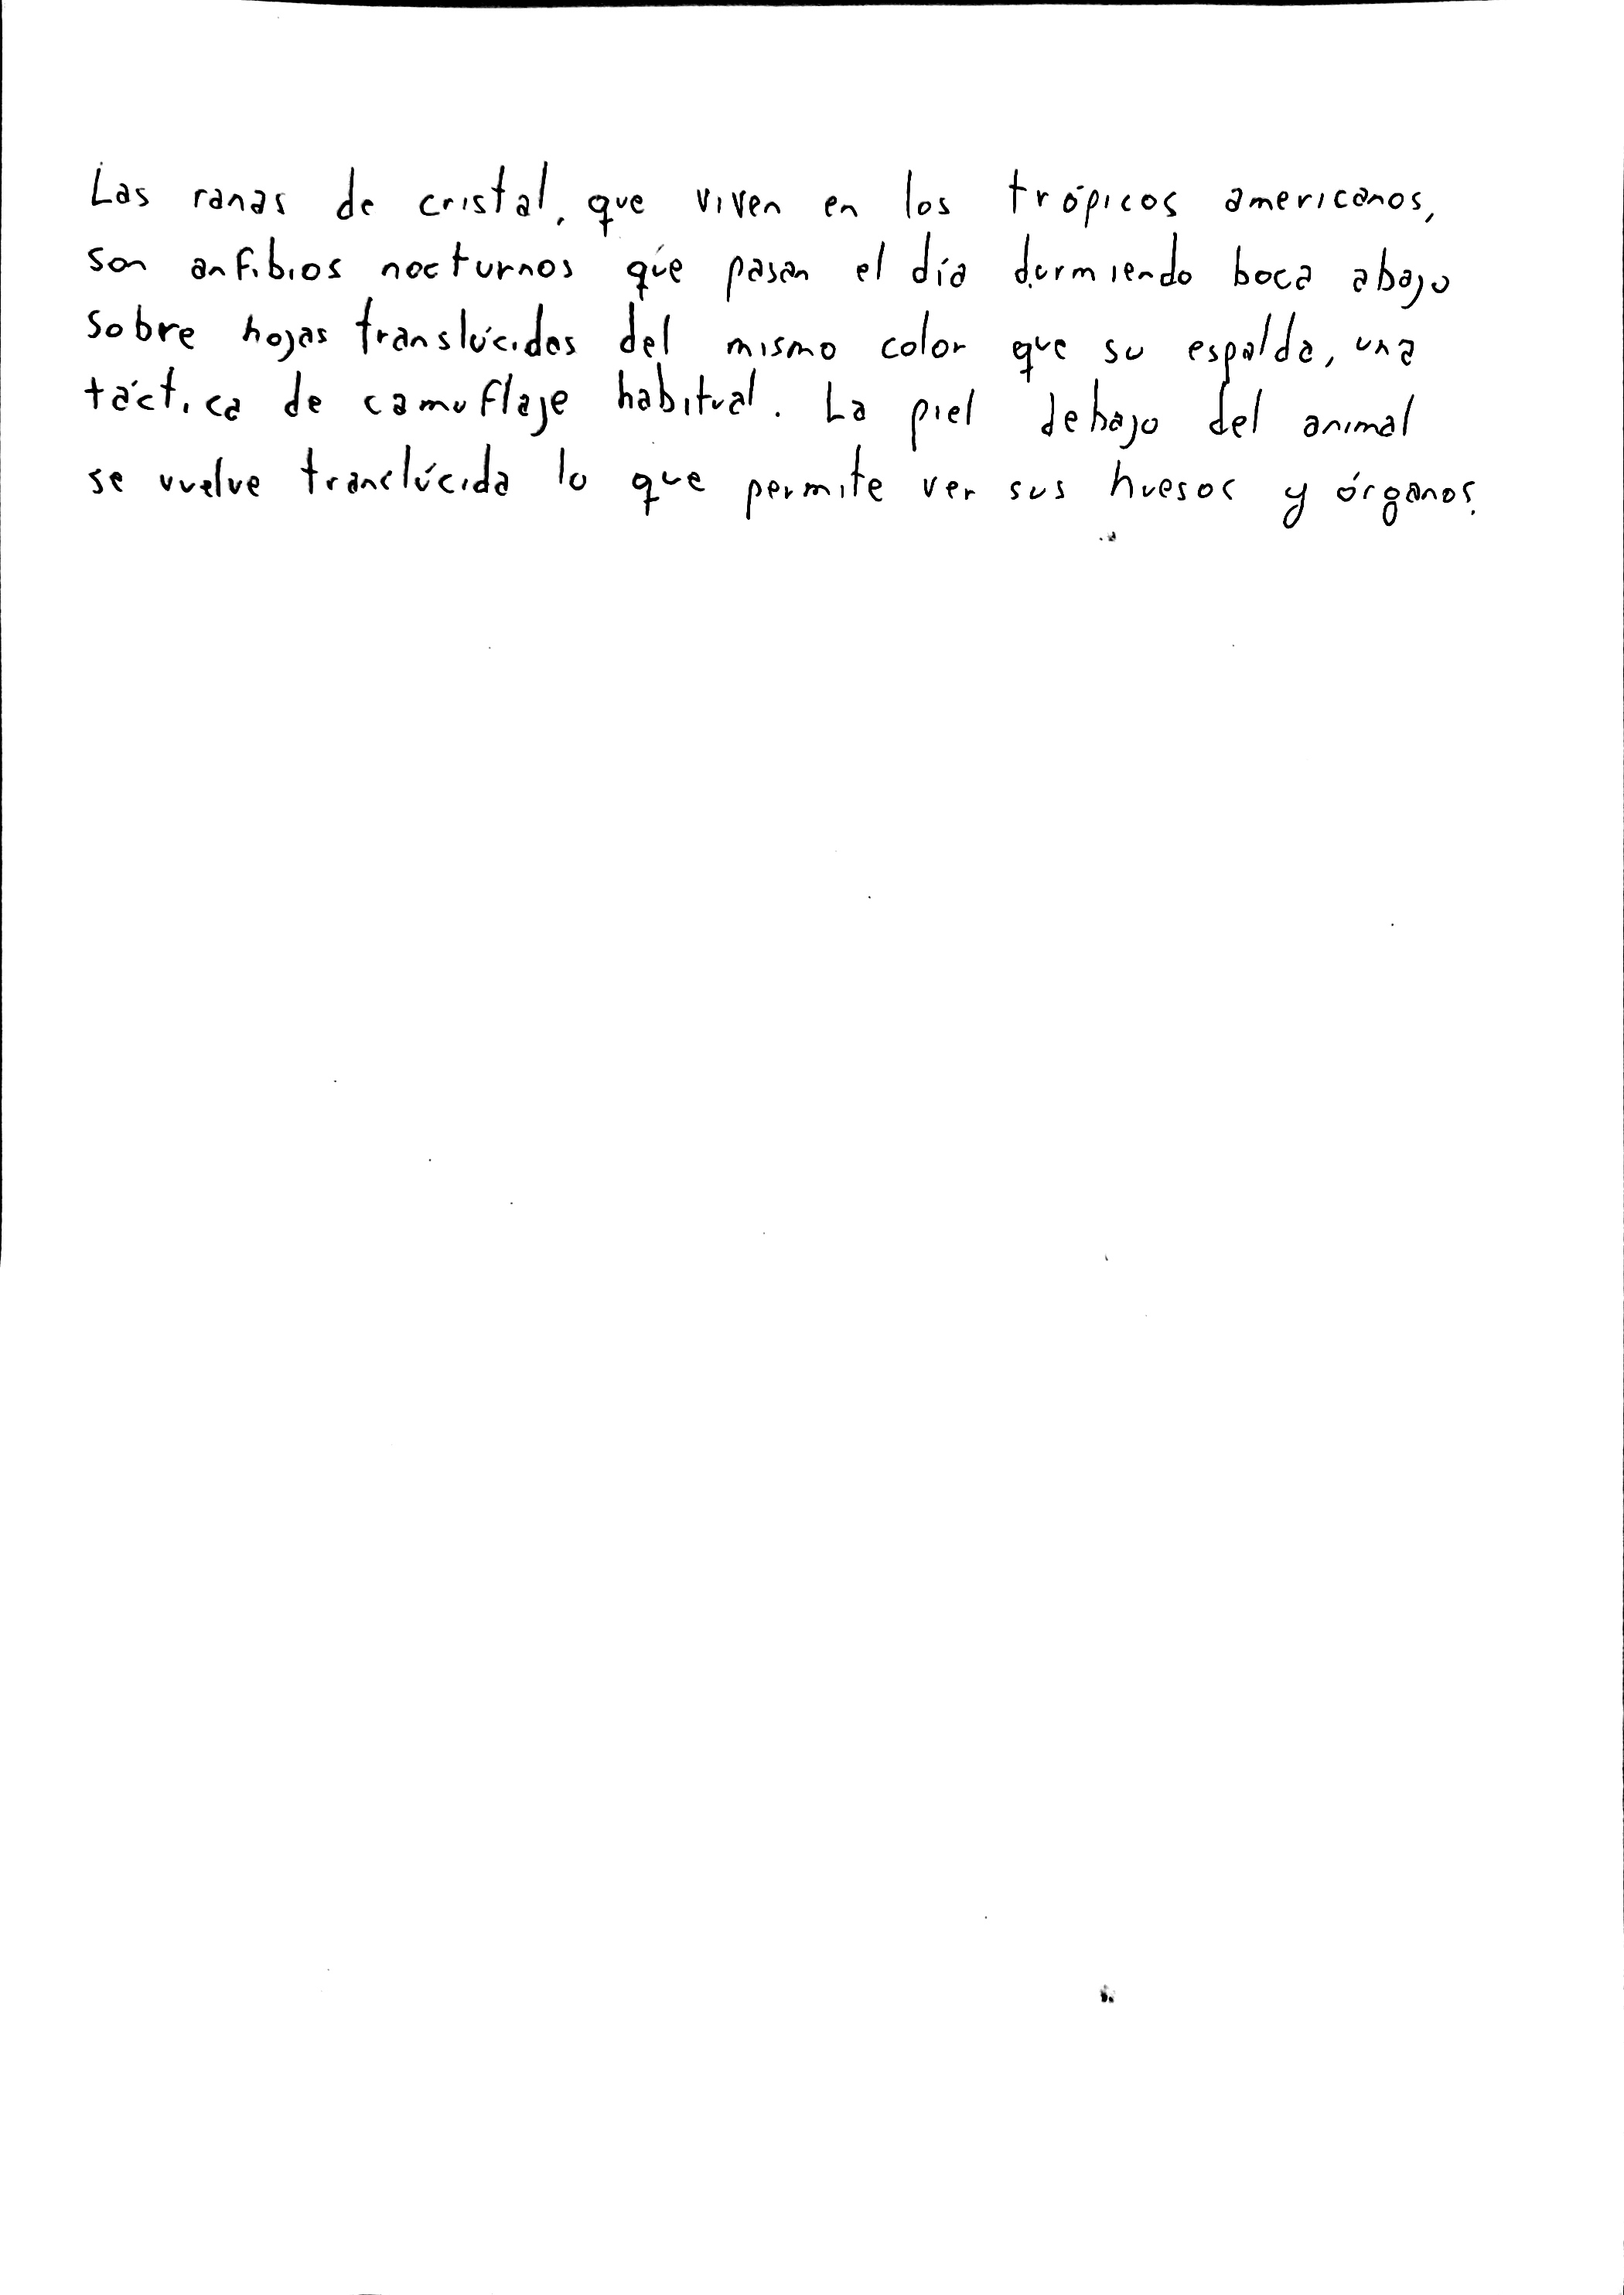 Las ranas de cristal, que viven en los trópicos americanos,
son anfibios nocturnos que pasan el día durmiendo boca abajo
sobre hojas translúcidas del mismo color que su espalda, una
táctica de camuflaje habitual. La piel debajo del animal
se vuelve translúcida lo que permite ver sus huesos y órganos.